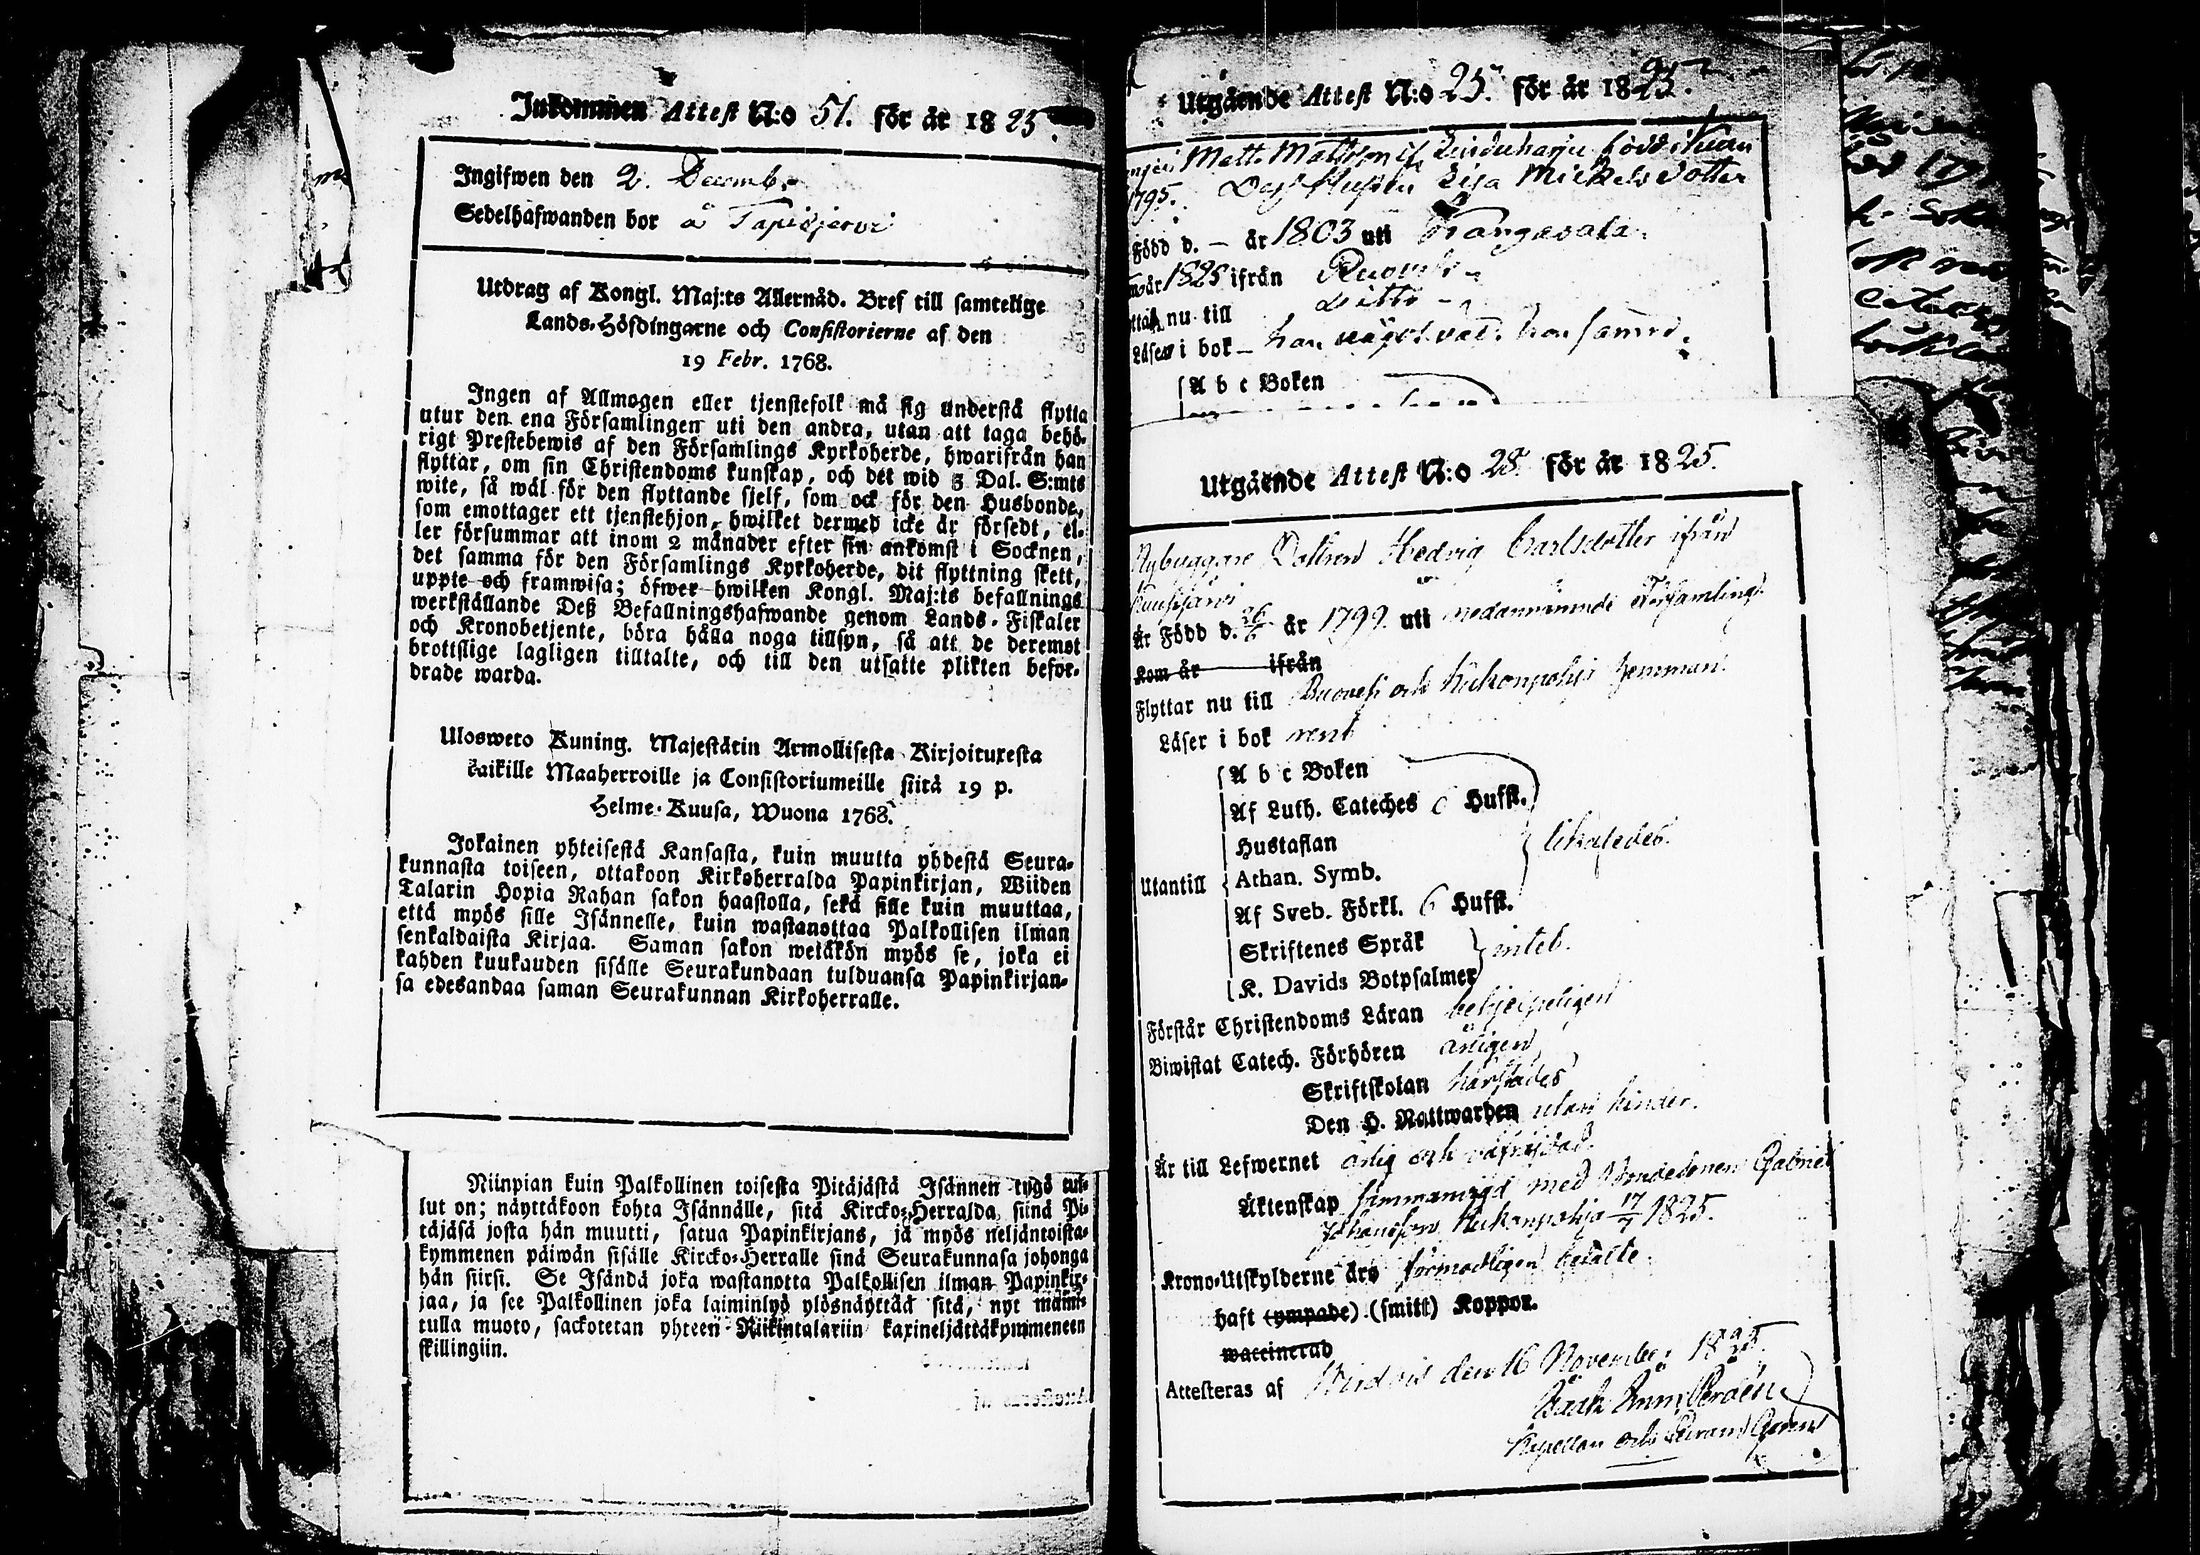 Inkommen Attest N:o 51. för år 1825.
Ingifwen den 2. Decemb.
Sedelhafwanden bor å Tapisjervi
Utdrag af Kongl. Maj:ts Allernåd. Bref till samtelige
Lands-Höfdingarne och Consistorierne af den
19 Febr. 1768.
Ingen af Allmogen eller tjenstefolk må sig understå flytta
utur den ena Församlingen uti den andra, utan att taga behö-
rigt Prestebewis af den Församlings Kyrkoherde, hwarifrån han
flyttar, om sin Christendoms kunskap, och det wid 5 Dal. S:mts
wite, så wäl för den flyttande sjelf, som ock för den Husbonde,
som emottager ett tjenstehjon, hwilket dermed icke är försedt, el-
ler försummar att inom 2 månader efter sin ankomst i Socknen,
det samma för den Församlings Kyrkoherde, dit flyttning skett,
uppte och framwisa; öfwer hwilken Kongl. Maj:ts befallnings
werkställande Deß Befallningshafwande genom Lands-Fiskaler
och Kronobetjente, böra hålla noga tillsyn, så att de deremot
brottslige lagligen tilltalte, och till den utsatte plikten befor-
drade warda.
Ulosweto Kuning. Majestätin Armollisesta Kirjoituxesta
kaikille Maaherroille ja Consistoriumeille siitä 19 p.
Helme-Kuusa, Wuona 1768.
Jokainen yhteisestä Kansasta, kuin muutta yhdestä Seura-
kunnasta toiseen, ottakoon Kirkoherralda Papinkirjan, Wiiden
Talarin Hopia Rahan sakon haastolla, sekä sille kuin muuttaa,
että myös sille Isännelle, kuin wastanottaa Palkollisen ilman
senkaldaista Kirjaa. Saman sakon wetäkön myös se, joka ei
kahden kuukauden sisälle Seurakundaan tulduansa Papinkirjan-
sa edesandaa saman Seurakunnan Kirkoherralle.
Niinpian kuin Palkollinen toisesta Pitäjästä Isännen tygö tul-
lut on; näyttäkoon kohta Isännälle, sitä Kircko-Herralda siinä Pi-
täjäsä josta hän muutti, saatua Papinkirjans, ja myös neljäntoista-
kymmenen päiwän sisälle Kircko-Herralle sinä Seurakunnasa johonga
hän siirsi. Se Isändä joka wastanotta Palkollisen ilman Papinkir-
jaa, ja see Palkollinen joka laiminlyö ylösnäyttää sitä, nyt maini-
tulla muoto, sackotetan yhteen Riikintalariin kaxineljättäkymmeneen
skillingiin.
Utgående Attest N:o 25. för år 1825.
Matts Mattsson född i
1795. Dess Hustru Lisa Mickelsdotter
Född d. — år 1803 uti Kangasala.
år 1825 ifrån Ruovesi
nu till Ditto
Läser i bok — han något, hon samma.
A b c Boken
Utgående Attest N:o 28. för år 1825.
Nybyggare Dottren Hedvig Carlsdotter ifrån
Kuusijärvi
Är Född d. 26/6 år 1799. uti nedannämnde Församling.
Kom år ifrån
Flyttar nu till Ruovesi och Kukonpohja hemman.
Läser i bok rent
A b c Boken
Af Luth. Cateches 6 Hufst.
Hustaflan
Utantill Athan. Symb. likaledes.
Af Sveb. Förkl. 6 Hufst.
Skriftenes Språk
K. Davids Botpsalmer intet.
Förstår Christendoms Läran behjelpeligen
Biwistat Catech. Förhören årligen
Skriftskolan härstädes
Den H. Nattwarden utan hinder.
Är till Lefwernet ärlig och
Äktenskap sammanvigd med Gabriel
Johansson Kukonpohja 17/7 1825.
Krono-Utskylderne äro förmodligen betalte.
haft (ympade) (smitt) Koppor.
waccinerad
Attesteras af Wirdois den 16 November 1825.
Kapellan